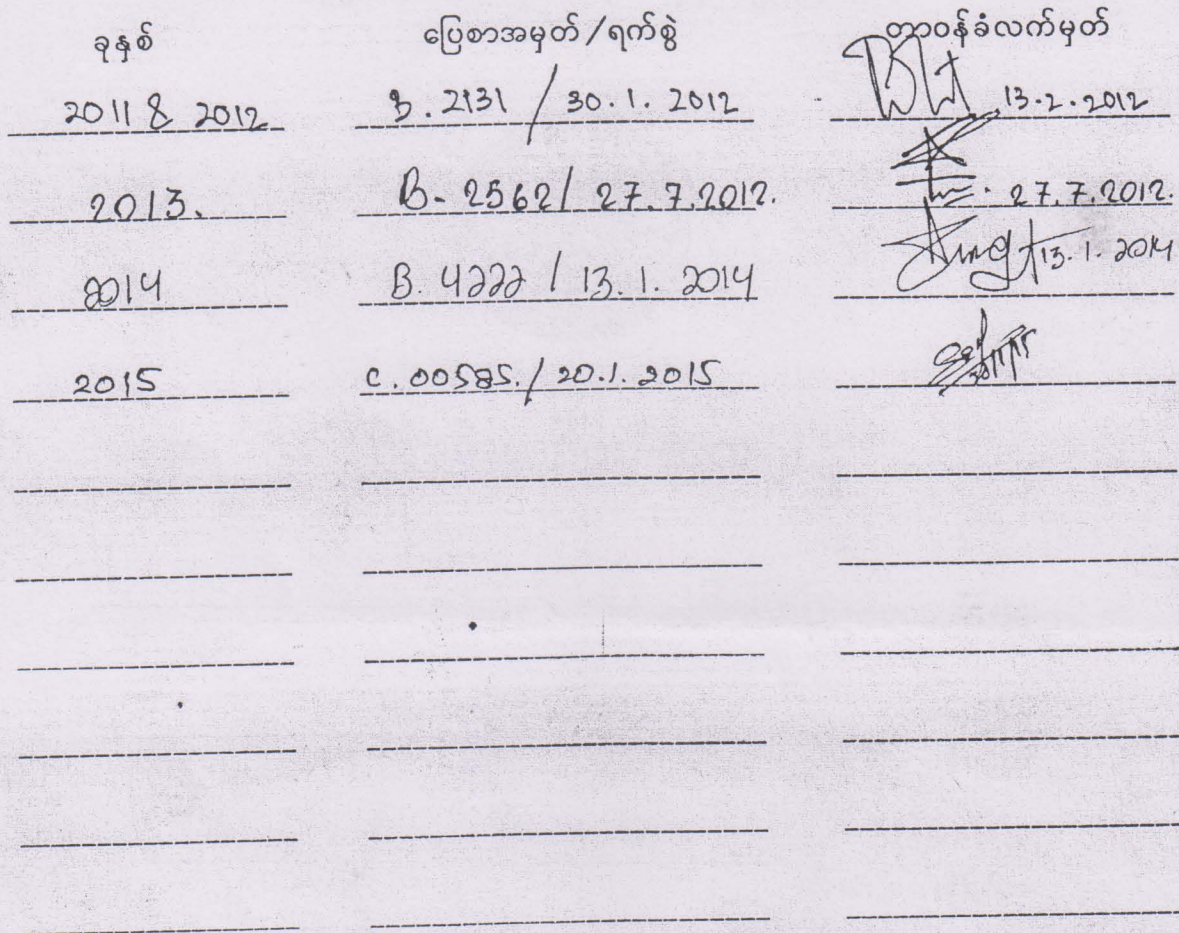 ခုနှစ် ပြေစာအမှတ်/ရက်စွဲ တာဝန်ခံလက်မှတ်
2011 & 2012 B. 2131 / 30.1.2012 13.2.2012
2013. B- 2562 / 27.7.2012. 27.7.2012.
2014 B 4222 / 13.1.2014 13.1.2014
2015 C.00585./20.1.2015